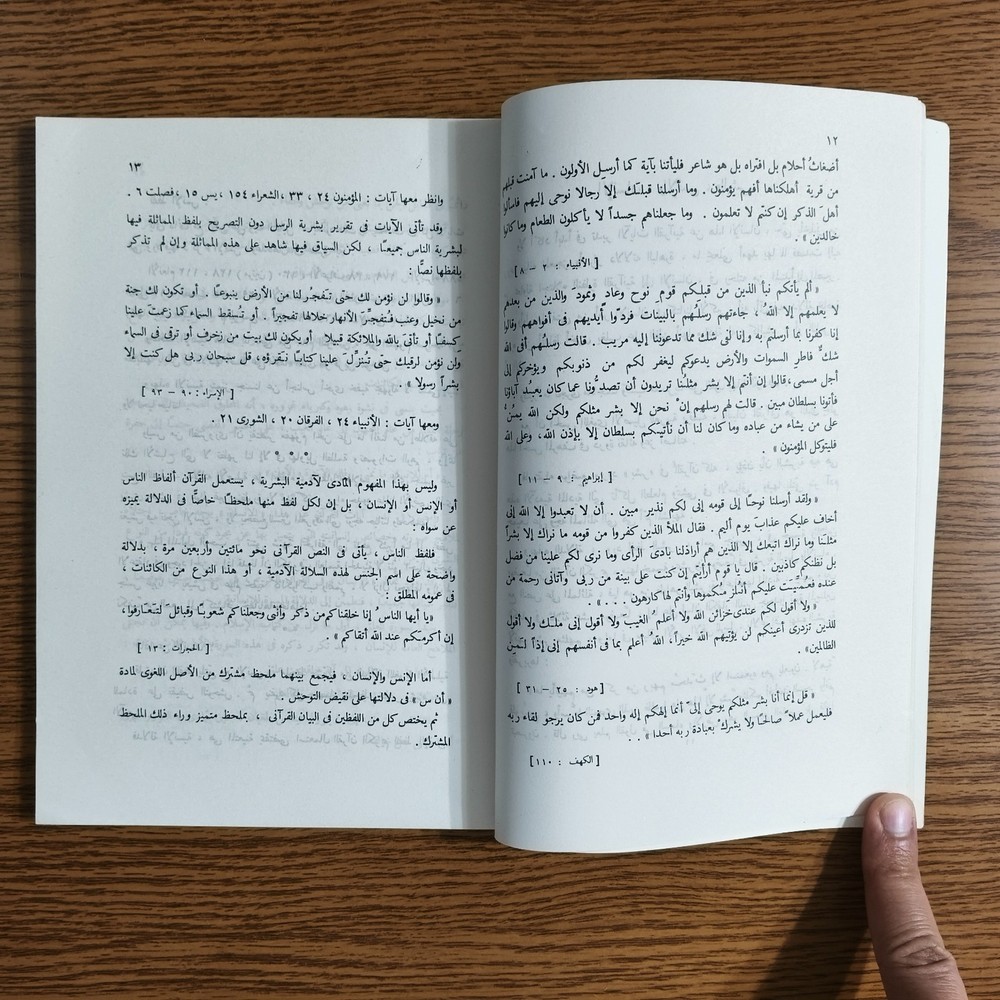 ١٢
أضغاثُ أحلام بل افتراه بل هو شاعر فليأتنا بآية كما أرسل الأولون . ما آمنت قبلهم
من قرية أهلكناها أفهم يؤمنون . وما أرسلنا قبلك إلا رجالا نوحى إليهم فاسألوا
أهل الذكر إن كنتم لا تعلمون . وما جعلناهم جسداً لا يأكلون الطعام وما كانوا
خالدين » .
[ الأنبياء : ٢ – ٨ ]
« ألم يأتكم نبأ الذين من قبلكم قوم نوح وعاد وثمودَ والذين من بعدهم
لا يعلمهم إلا اللهُ ، جاءتهم رسلُهم بالبينات فردّوا أيديهم فى أفواههم وقالوا
إنا كفرنا بما أرسلتم به وإنا لفى شك مما تدعوننا إليه مريب . قالت رسلُهم أفى الله
شكٌّ فاطرِ السموات والأرض يدعوكم ليغفر لكم من ذنوبكم ويؤخركم إلى
أجل مسمى، قالوا إن أنتم إلا بشر مثلُنا تريدون أن تصدُّونا عما كان يعبُد آباؤنا
فأتونا بسلطان مبين . قالت لهم رسلهم إنْ نحن إلا بشر مثلكم ولكن الله يمنُّ
على من يشاء من عباده وما كان لنا أن نأتيَكم بسلطان إلا بإذن الله، وعلى الله
فليتوكل المؤمنون » .
[ إبراهيم : ٩ – ١١ ]
« ولقد أرسلنا نوحًا إلى قومه إنى لكم نذير مبين . أن لا تعبدوا إلا الله إنى
أخاف عليكم عذابَ يوم أليم . فقال الملأ الذين كفروا من قومه ما نراك إلا بشراً
مثلنَا وما نراك اتبعك إلا الذين هم أراذلنا بادىَ الرأى وما نرى لكم علينا من فضل
بل نظنكم كاذبين . قال يا قوم أرأيتم إن كنت على بينة من ربى وآتانى رحمة من
عنده فعُمِّيَتْ عليكم أنُلزِمُكموها وأنتم لها كارهون . . . .
« ولا أقول لكم عندى خزائن الله ولا أعلمُ الغيبَ ولا أقول إنى ملَك ولا أقول
للذين تزدرى أعينكم لن يؤتيهم الله خيراً، اللهُ أعلم بما فى أنفسهم إنى إذاً لمَنِ
الظالمين» .
[ هود : ٢٥ – ٣١ ]
« قل إنما أنا بشر مثلكم يوحى إلىَّ أنما إلهكم إله واحد فمن كان يرجو لقاء ربه
فليعمل عملا صالحًا ولا يشركْ بعبادة ربه أحدا » . .
[ الكهف : ١١٠ ]
١٣
وانظر معها آيات : المؤمنون ٢٤ ، ٣٣ ، الشعراء ١٥٤ ، يس ١٥ ، فصلت ٦ .
وقد تأتى الآيات فى تقرير بشرية الرسل دون التصريح بلفظ المماثلة فيها
لبشرية الناس جميعًا ، لكن السياق فيها شاهد على هذه المماثلة وإن لم تذكر
بلفظها نصًّا :
« وقالوا لن نؤمن لك حتى تفجُر لنا من الأرض ينبوعًا . أو تكون لك جنة
من نخيل وعنب فتُفجِّرَ الأنهار خلالها تفجيراً . أو تُسقط السماء كما زعمتَ علينا
كِسفًا أو تأتىَ بالله والملائكة قبيلا أو يكون لك بيت من زخرف أو ترقى فى السماء
ولن نؤمن لرقيك حتى تُنزِّلَ علينا كتابًا نقرؤه، قل سبحان ربى هل كنت إلا
بشراً رسولا » .
[ الإسراء : ٩٠ – ٩٣ ]
ومعها آيات : الأنبياء ٢٤ ، الفرقان ٢٠ ، الشورى ٢١ .
• • •
وليس بهذا المفهوم المادى لآدمية البشرية ، يستعمل القرآن ألفاظ الناس
أو الإنس أو الإنسان ، بل إن لكل لفظ منها ملحظًا خاصًّا فى الدلالة يميزه
عن سواه :
فلفظ الناس ، يأتى فى النص القرآنى نحو مائتين وأربعين مرة ، بدلالة
واضحة على اسم الجنس لهذه السلالة الآدمية ، أو هذا النوع من الكائنات ،
فى عمومه المطلق :
«يا أيها الناسُ إنا خلقناكم من ذكر وأنثى وجعلناكم شعوبًا وقبائلَ لتَعارفوا،
إن أكرمَكم عند الله أتقاكم » .
[ الحجرات : ١٣ ]
أما الإنس والإنسان ، فيجمع بينهما ملحظ مشترك من الأصل اللغوى لمادة
« أن س » فى دلالتها على نقيض التوحش .
ثم يختص كل من اللفظين فى البيان القرآنى ، بملحظ متميز وراء ذلك الملحظ
المشترك .